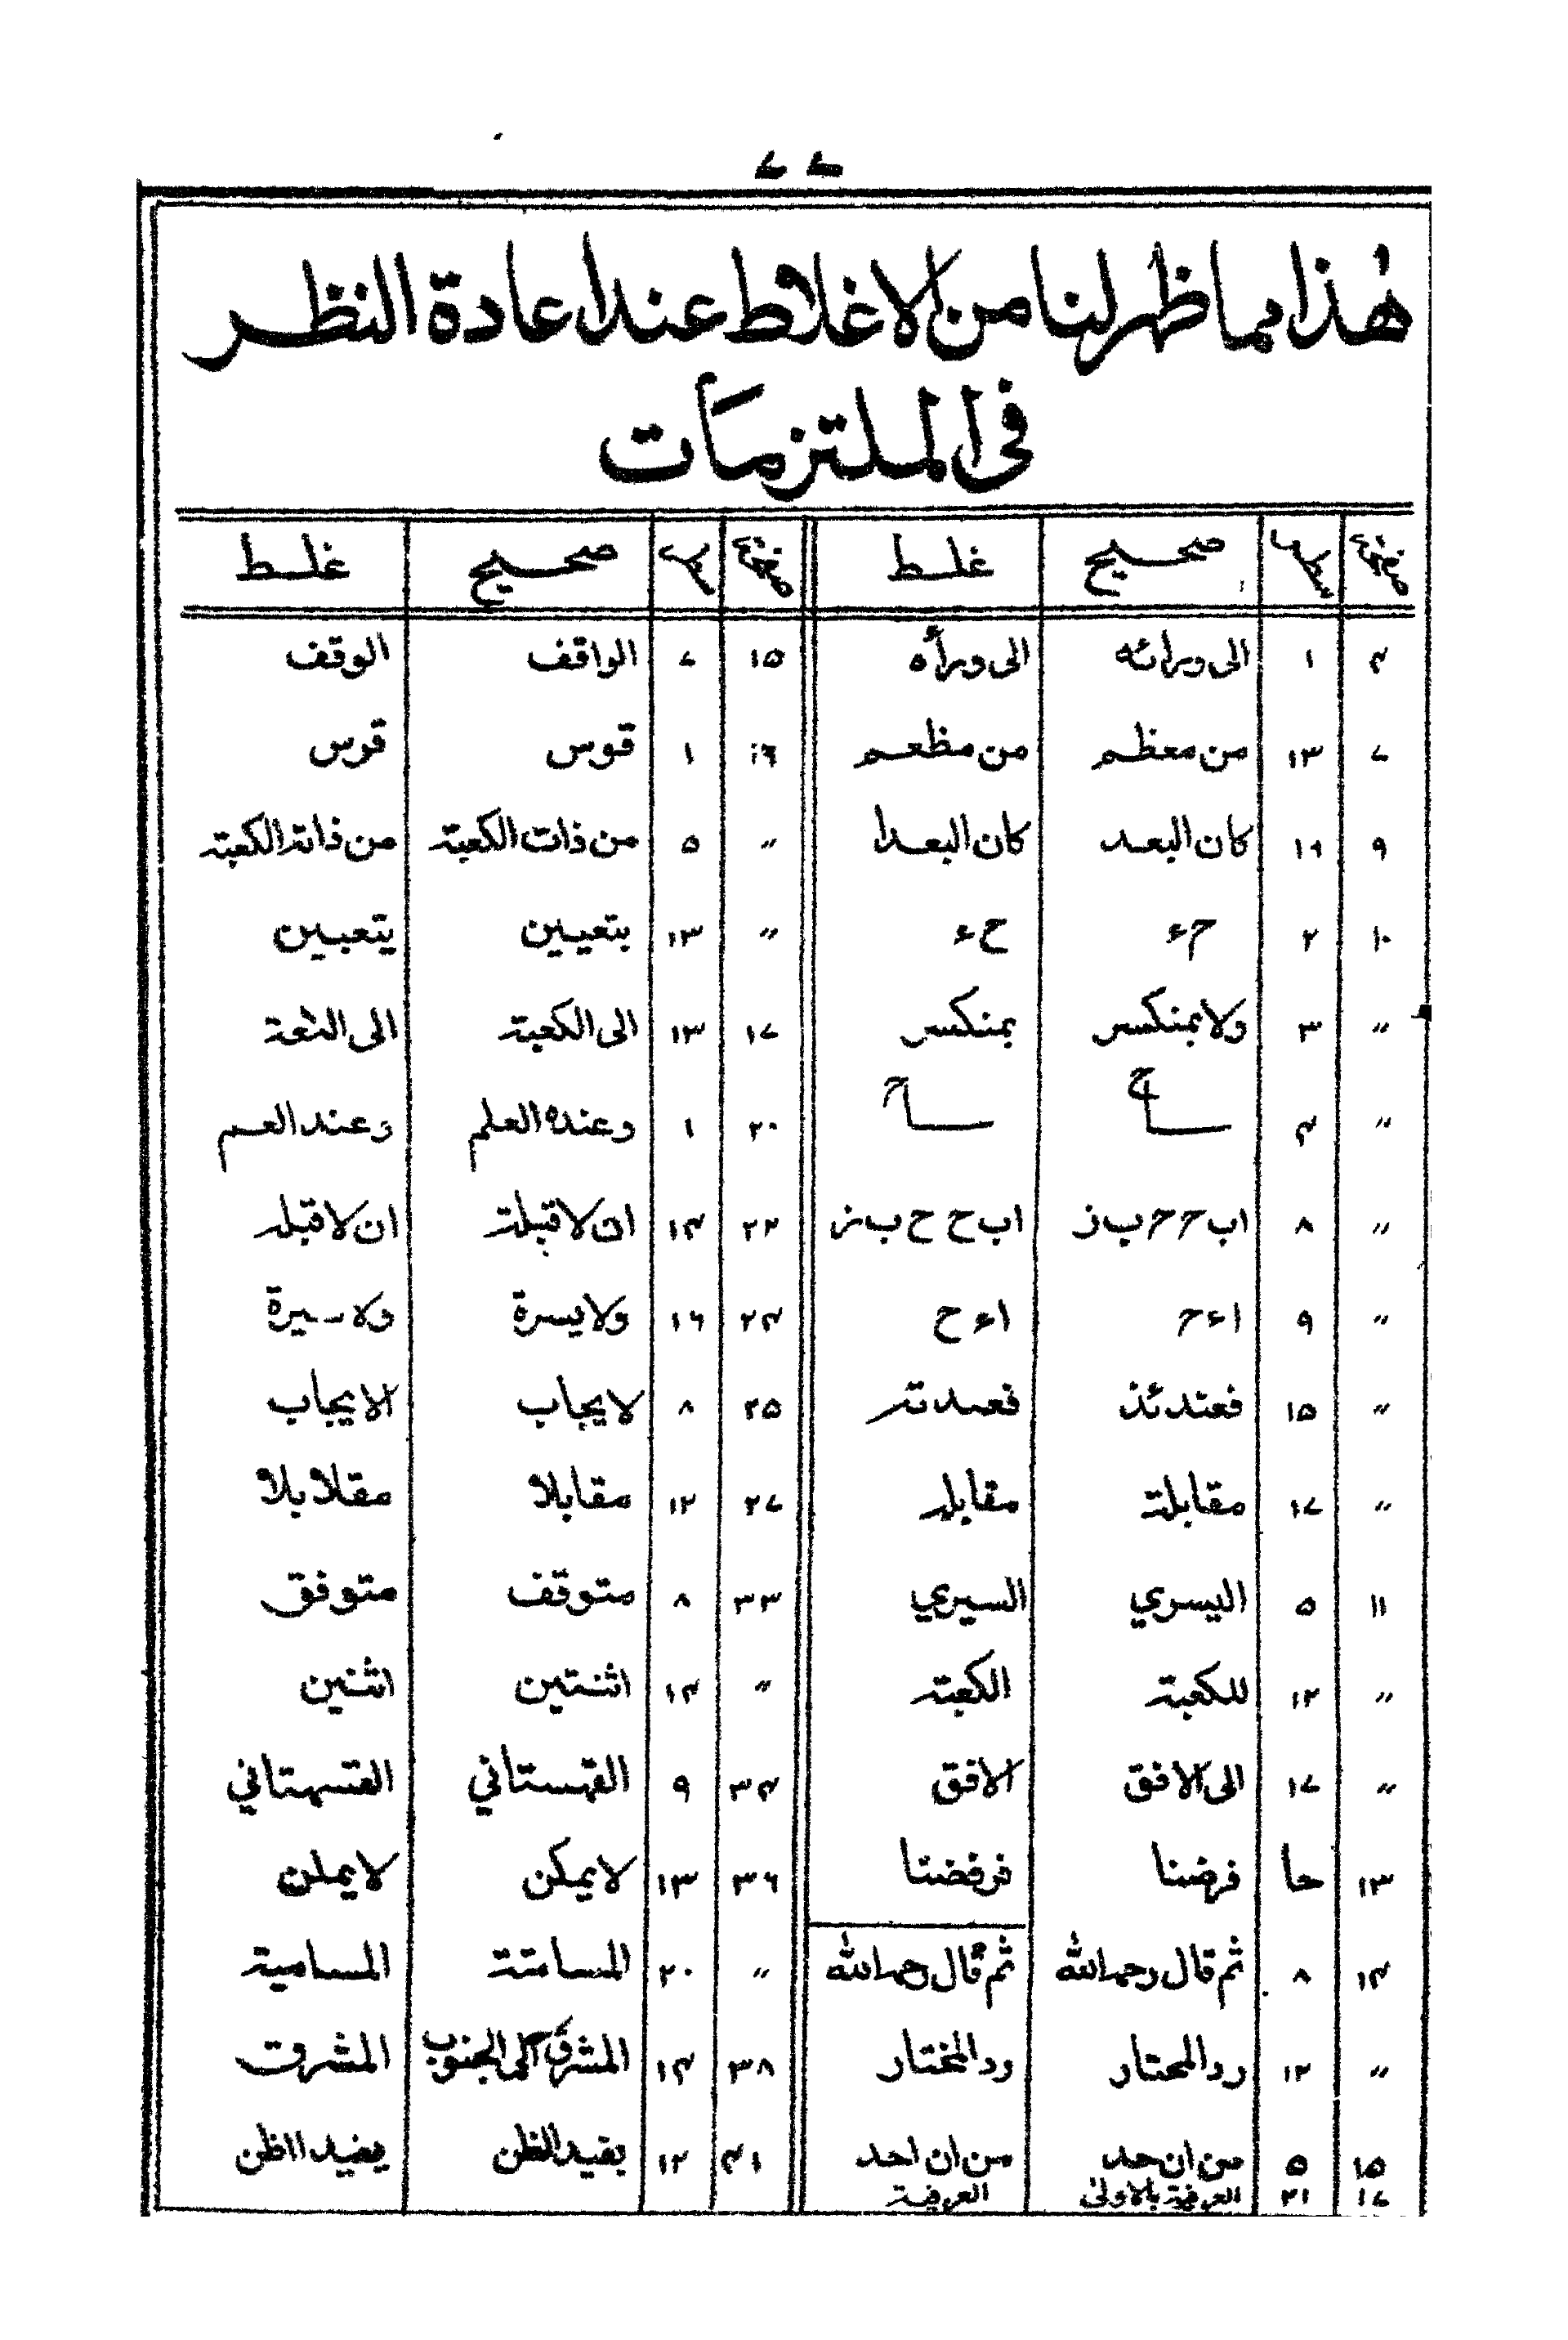 ۷۷
هٰذا مما ظهر لنا من الاغلاط عند اعادة النظر
فی الملتزمات
صفحہ سطر صحیح غلط صفحہ سطر صحیح غلط
۴ ۱ الی ورائه الی وراٰه ۱۵ ۷ الواقف الوقف
۷ ۱۳ من معظم من مظعم ۱۶ ۱ قوس قرس
۹ ۱۶ کان البعد کان البعدا 〃 ۵ من ذات الکعبة من ذاته الکعبة
۱۰ ۲ حء ح ء 〃 ۱۳ بتعیین یتعبین
〃 ۳ ولا بمنکسر بمنکسر ۱۷ ۱۳ الی الکعبة
〃 ۴ ۲۰ ۱ وعنده العلم وعند العم
〃 ۸ اب ح ح ب ز اب ح ح ب ز ۲۲ ۱۴ ان لا قبلة ان لا قبله
〃 ۹ اء ح اء ح ۲۴ ۱۶ ولا یسرة ولا سیرة
〃 ۱۵ فعندئذ ۲۵ ۸ لا یجاب الایجاب
〃 ۱۷ مقابلة مقابله ۲۷ ۱۲ مقابلا مقلابلا
۱۱ ۵ الیسری السیری ۳۳ ۸ متوقف متوفق
〃 ۱۲ للکعبة الکعبة 〃 ۱۴ اثنتین اثنین
〃 ۱۷ الی الافق الافق ۳۴ ۹ القهستانی القسهتانی
۱۳ فرضنا فرفضنا ۳۶ ۱۳ لا یمکن لا یملن
۱۴ ۸ ثم قال رحمه الله ثم قال رحمه الله 〃 ۲۰ المسامتة المسامیة
〃 ۱۲ رد المحتار رد المختار ۳۸ ۱۴ المشرق الی الجنوب المشرق
۱۵ ۵ من ان حد من ان احد ۴۱ ۱۲ یفید الظن یفید ااظن
۱۷ ۲۱